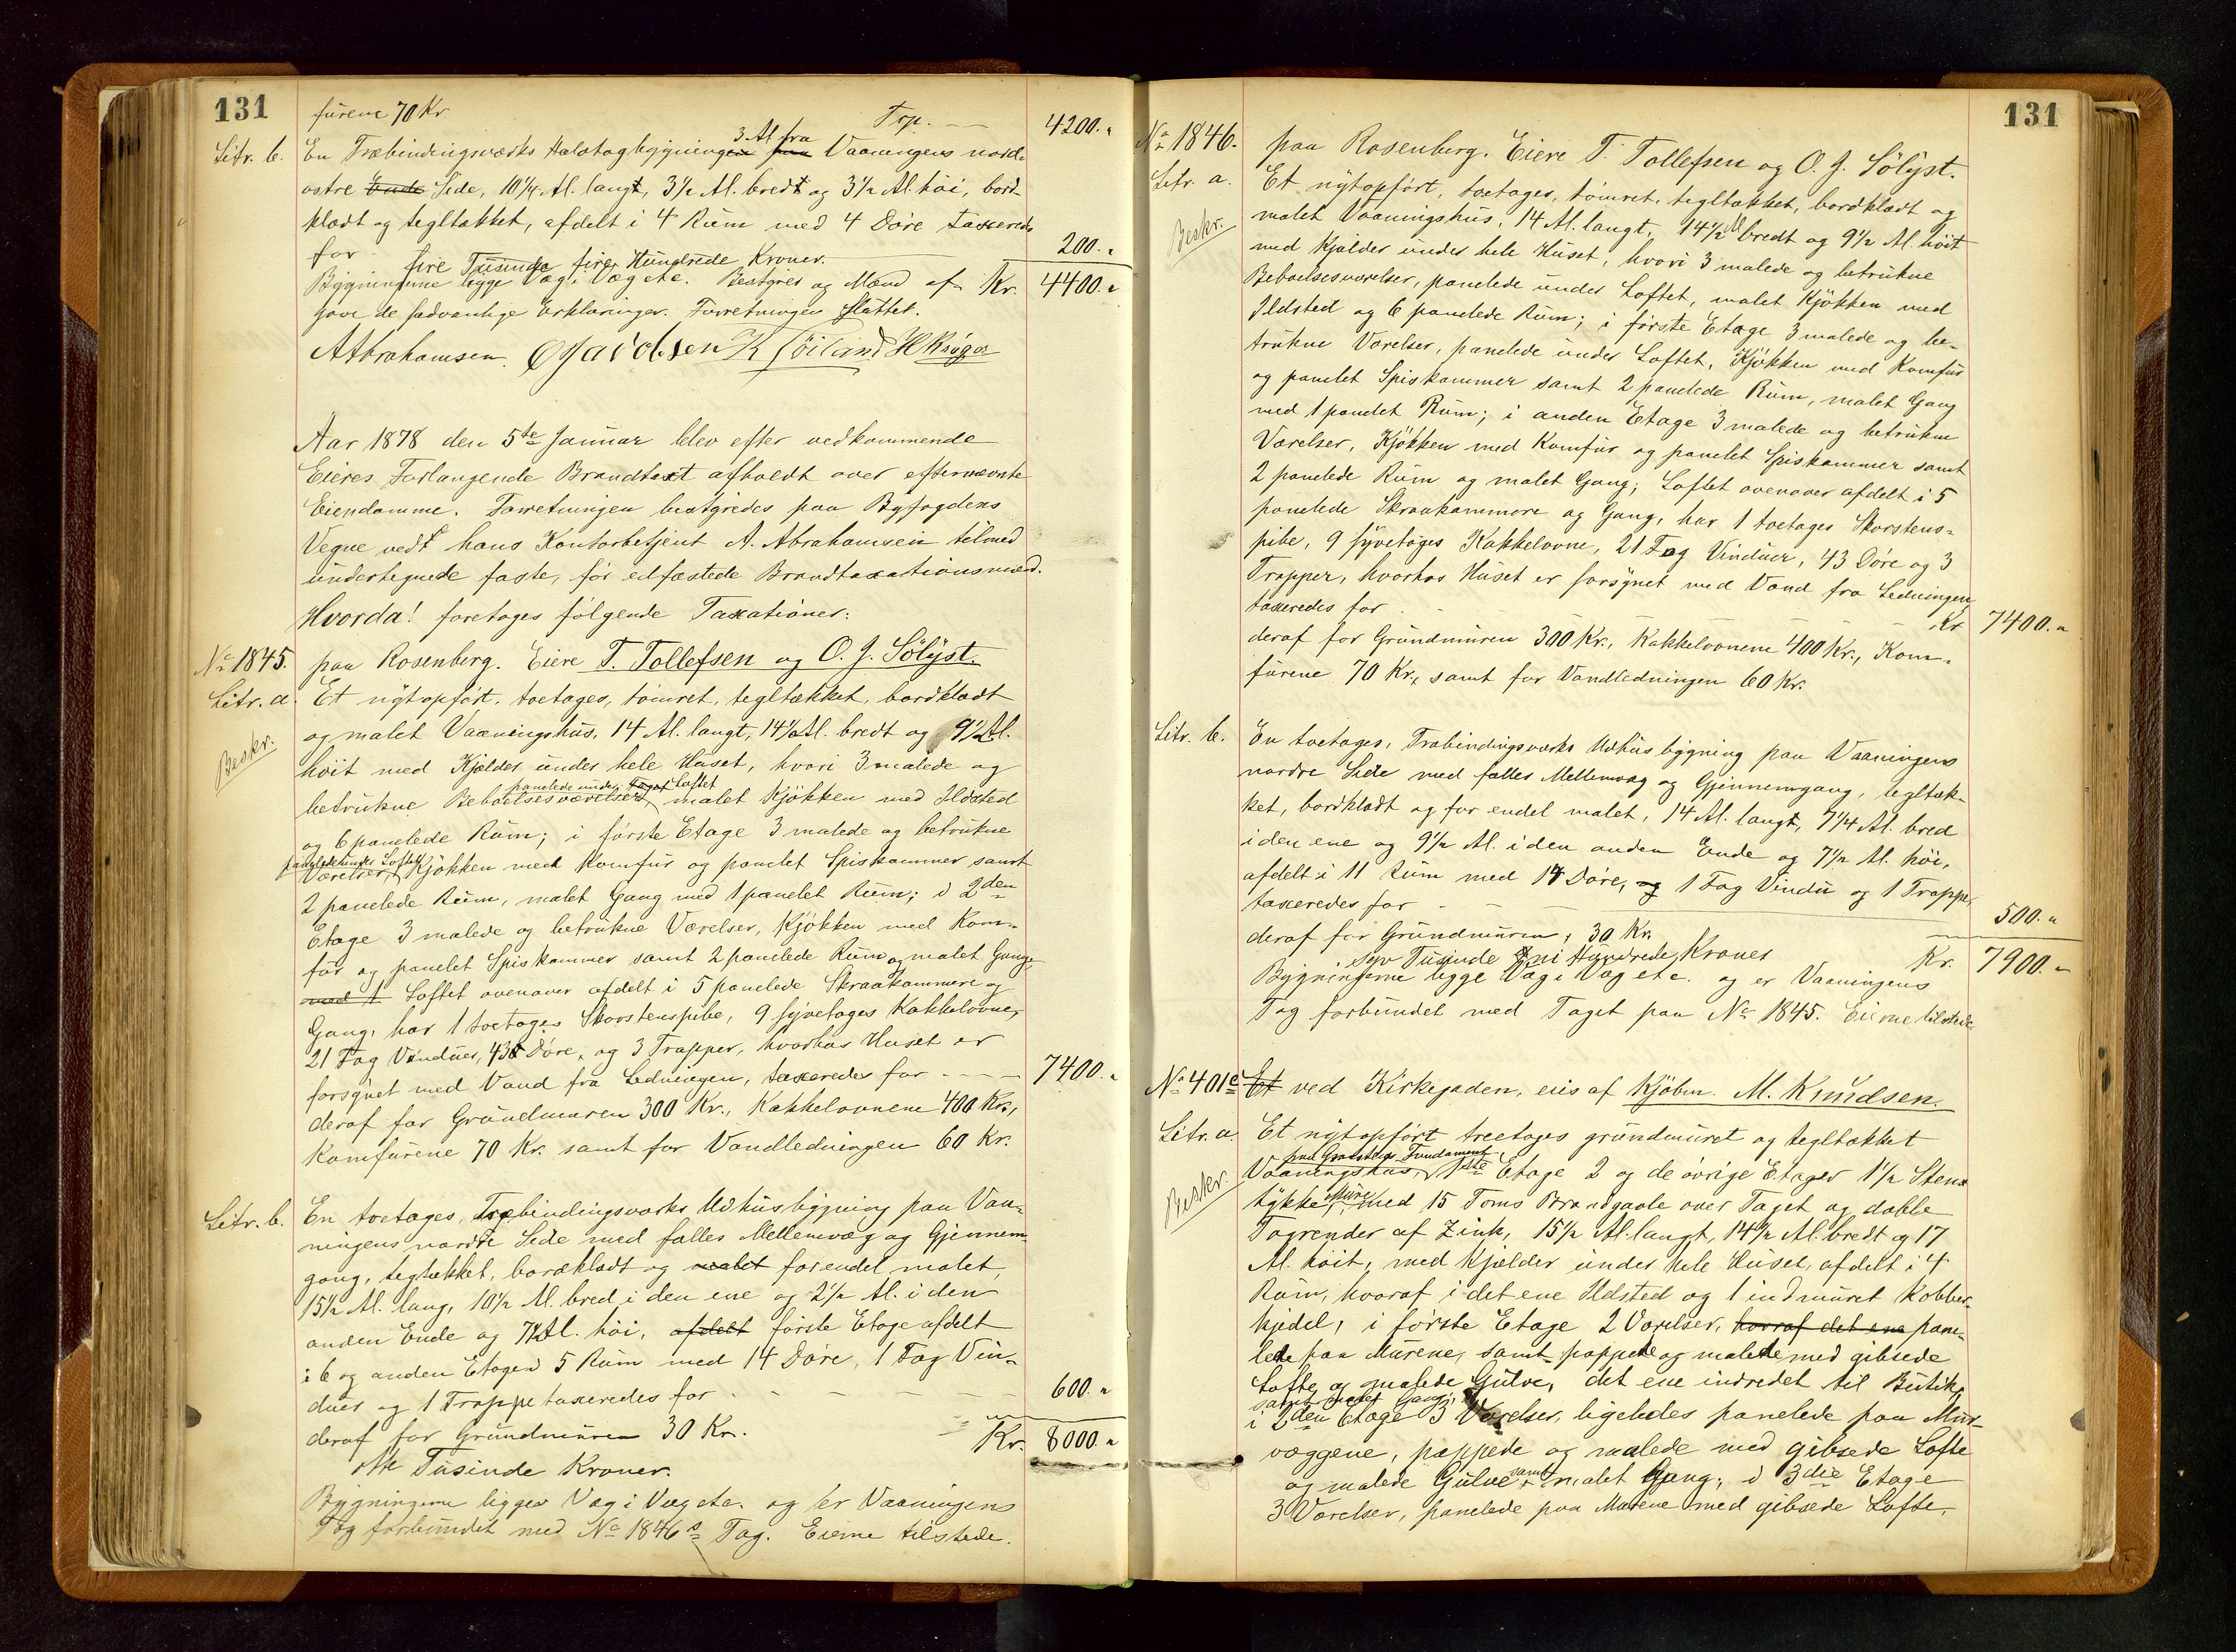 131
furene 70 Kr. Trp. — 4200."
Litr. b. En Træbindingsværks Halvtagbygningen paa 3 Al. fra Vaaningens nord-
østre Ende Side, 10 1/4 Al. langt, 3 1/2 Al. bredt og 3 1/2 Al. høi, bord-
klædt og tegltækket, afdelt i 4 Rum med 4 Døre taxeredes
for 200."
fire Tusinde fire Hundrede Kroner.
Bygningerne ligge Væg i Væg etc. Bestyrer og Mænd af- Kr. 4400."
gave de sædvanlige Erklæringer. Forretningen sluttet.
A Abrahamsen. O Jacobsen K Söiland H Krüger
Aar 1878 den 5te Januar blev efter vedkommende
Eieres Forlangende Brandtaxt afholdt over efternævnte
Eiendomme. Forretningen bestyredes paa Byfogdens
Vegne vedt hans Kontorbetjent A. Abrahamsen tilmed
undertegnede faste, før edfæstede Brandtaxationsmænd.
Hvorda! foretoges følgende Taxationer:
No 1845. paa Rosenberg. Eiere T. Tollefsen og O. J. Sölyst.
Litr. a. Et nytopført, toetages, tømret, tegltækket, bordklædt
og malet Vaaningshus, 14 Al. langt, 14 1/2 Al. bredt og 9 1/2 Al.
Beskr.
høit med Kjælder under hele Huset, hvori 3 malede og
panelede under Taget Loftet
betrukne Beboelsesværelser, malet Kjøkken med Ildsted
og 6 panelede Rum; i første Etage 3 malede og betrukne
panelede under Loftet
Værelser, Kjøkken med Komfur og panelet Spiskammer samt
2 panelede Rum, malet Gang med 1 panelet Rum; i 2den
Etage 3 malede og betrukne Værelser, Kjøkken med Kom-
fur og panelet Spiskammer samt 2 panelede Rum og malet Gang,
med 1 Loftet ovenover afdelt i 5 panelede Skraakammere og
Gang, har 1 toetages Skorstenspibe, 9 syvetages Kakkelovne,
21 Fag Vinduer, 43 Døre, og 3 Trapper, hvorhos Huset er
forsynet med Vand fra Ledningen, taxeredes for - - - 7400."
deraf for Grundmuren 300 Kr., Kakkelovnene 400 Kr.,
Komfurene 70 Kr. samt for Vandledningen 60 Kr.
Litr. b. En toetages, Træbindingsværks Udhusbygning paa Vaa-
ningens nordre Side med fælles Mellemvæg og Gjennem-
gang, tegltækket, bordklædt og malet forendel malet,
15 1/2 Al. lang, 10 1/2 Al. bred i den ene og 2 1/2 Al. i den
anden Ende og 7 1/2 Al. høi, afdelt første Etage afdelt
i 6 og anden Etage i 5 Rum med 14 Døre, 1 Fag Vin-
duer og 1 Trappe taxeredes for - - - - 600."
deraf for Grundmuren 30 Kr. Kr. 8000."
otte Tusinde Kroner.
Bygningerne ligger Væg i Væg etc. og er Vaaningens
Tag forbundet med No 1846s Tag. Eierne tilstede.
131
No 1846. paa Rosenberg. Eiere T. Tollefsen og O. J. Sölyst.
Litr. a. Et nytopført, toetages, tømret, tegltækket, bordklædt og
malet Vaaningshus, 14 Al. langt, 14 1/2 Al bredt og 9 1/2 Al. høit
Beskr.
med Kjælder under hele Huset, hvori 3 malede og betrukne
Beboelsesværelser, panelede under Loftet, malet Kjøkken med
Ildsted og 6 panelede Rum; i første Etage 3 malede og be-
trukne Værelser, panelede under Loftet, Kjøkken med Komfur
og panelet Spiskammer samt 2 panelede Rum, malet Gang
med 1 panelet Rum; i anden Etage 3 malede og betrukne
Værelser, Kjøkken med Komfur og panelet Spiskammer samt
2 panelede Rum og malet Gang; Loftet ovenover afdelt i 5
panelede Skraakammere og Gang, har 1 toetages Skorstens-
pibe, 9 syvetages Kakkelovne, 21 Fag Vinduer, 43 Døre og 3
Trapper, hvorhos Huset er forsynet med Vand fra Ledningen,
taxeredes for - - - - - Kr 7400."
deraf for Grundmuren 300 Kr., Kakkelovnene 400 Kr., Kom-
furene 70 Kr., samt for Vandledningen 60 Kr.
Litr. b. En toetages, Træbindingsværks Udhusbygning paa Vaaningens
nordre Side med fælles Mellemvæg og Gjennemgang, tegltæk-
ket, bordklædt og for endel malet, 14 Al. langt, 7 1/4 Al. bred
i den ene og 9 1/2 Al. i den anden Ende og 7 1/2 Al. høi,
afdelt i 11 Rum med 14 Døre, og 1 Fag Vindu og 1 Trappe,
taxeredes for - - - 500."
deraf for Grundmuren, 30 Kr.
Syv Tusinde ni Hundrede Kroner Kr. 7900."
Bygningerne ligge Væg i Væg etc. og er Vaaningens
Tag forbundet med Taget paa No 1845. Eierne tilstede
No 401c Et ved Kirkegaden, eies af Kjöbm. M. Knudsen.
Litr. a. Et nytopført treetages grundmuret og tegltækket
paa Graastens Fundament
Vaaningshus, 1ste Etage 2 og de øvrige Etager 1 1/2 Stens
Beskr.
tykke Mure, med 15 Toms Brandgavle over Taget og doble
Tagrender af Zink, 15 1/2 Al. langt, 14 1/2 Al. bredt og 17
Al. høit, med Kjælder under hele Huset, afdelt i 4
Rum, hvoraf i det ene Ildsted og 1 indmuret Kobber-
kjedel, i første Etage 2 Værelser, hvoraf det ene pane-
lede paa Murene, samt pappede og malede med gibsede
Lofte og malede Gulve, det ene indredet til Butik,
samt malet Gang;
i 2den Etage 3 Værelser, ligeledes panelede paa Mur-
væggene, pappede og malede med gibsede Lofte
og malede Gulve samt malet Gang; i 3die Etage
3 Værelser, panelede paa Murene med gibsede Lofte,